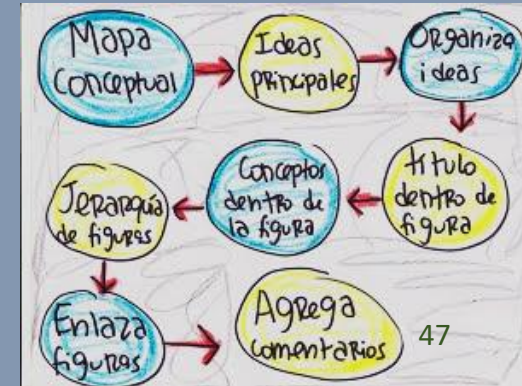 Mapa
Conceptual
Ideas
principales
Organiza
ideas
titulo
dentro de
figura
Conceptos
dentro de
la figura
Jerarquía
de figuras
Enlaza
figuras
Agrega
comentarios
47